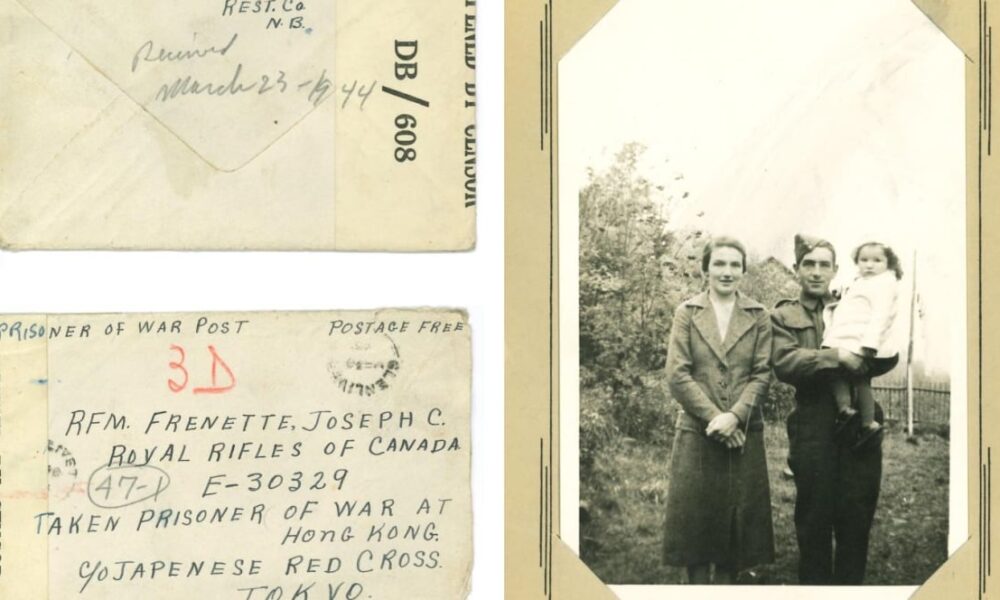 REST. CO.
N.B.
Received
March 23-1944
DB/608
OPENED BY CENSOR
PRISONER OF WAR POST
POSTAGE FREE
3D
GLENLIVET
RFM. FRENETTE, JOSEPH C.
ROYAL RIFLES OF CANADA
47-1
E-30329
TAKEN PRISONER OF WAR AT
HONG KONG.
C/O JAPENESE RED CROSS.
TOKYO.